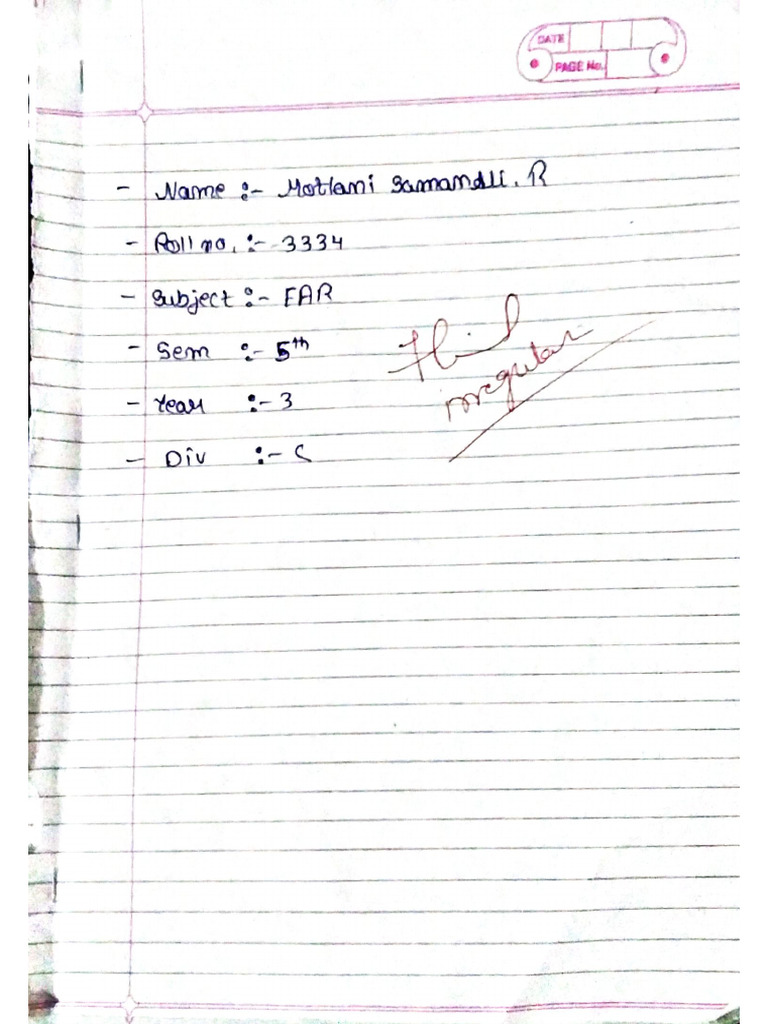 DATE
PAGE No.
- Name :- Motlani Samandli. R
- Roll no. :- 3334
- Subject :- EAR
- Sem :- 5th
- Year :- 3
- Div :- C
irregular